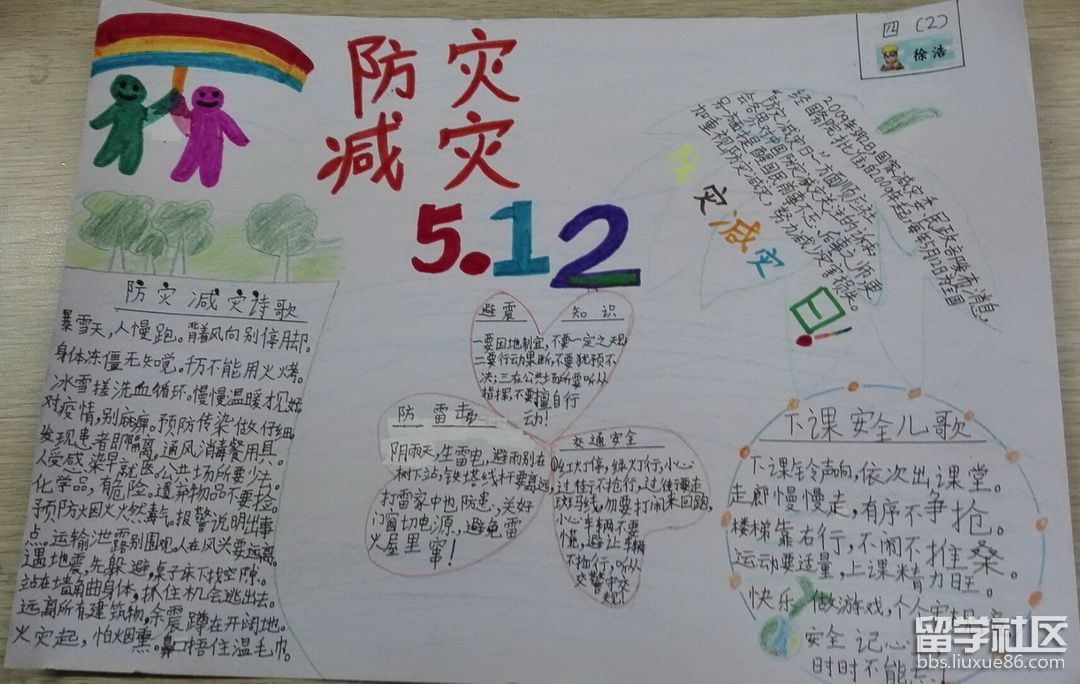 四（2）
徐浩
防灾
减灾
5.12
2009年3月2日,国家减灾委、民政部发布消息,
经国务院批准,自2009年起,每年5月12日为全国
“防灾减灾日”
加重视防灾减灾,努力减少灾害损失。
灾减灾
日!
防灾减灾诗歌
暴雪天,人慢跑。背着风向别停脚。
身体冻僵无知觉。千万不能用火烤。
冰雪搓洗血循环。慢慢温暖才见好。
对疫情,别麻痹。预防传染做仔细。
发现患者即隔离,通风消毒餐用具。
人受感染早就医。公共场所要少去。
化学品,有危险。遗弃物品不要捡。
预防烟火燃毒气。报警说明出事
点。运输泄露别围观。人在风头要远离。
遇地震,先躲避,桌子床下找空隙。
站在墙角曲身体,抓住机会逃出去。
远离所有建筑物,余震蹲在开阔地。
火灾起,怕烟熏。鼻口捂住湿毛巾。
避震 知识
一要因地制宜,不要一定之规;
二要行动果断,不要犹预不
决;三在公共场所要听从
指挥,不要擅自行
动!
防雷击
阴雨天,生雷电,避雨别在
树下站,铁塔线杆要离远,
打雷家中也防患,关好
门窗切电源,避免雷
火屋里窜!
交通安全
红灯停,绿灯行,小心
过往不抢行,过往
斑马线,勿要打闹来回跑,
小心车辆不要
慌,避让车辆
不抢行,听从
交警
下课安全儿歌
下课铃声响,依次出课堂。
走廊慢慢走,有序不争抢。
楼梯靠右行,不闹不推桑。
运动要适量,上课精力旺。
快乐做游戏,个人
安全记心
时时不能忘
留学社区
bbs.liuxue86.com